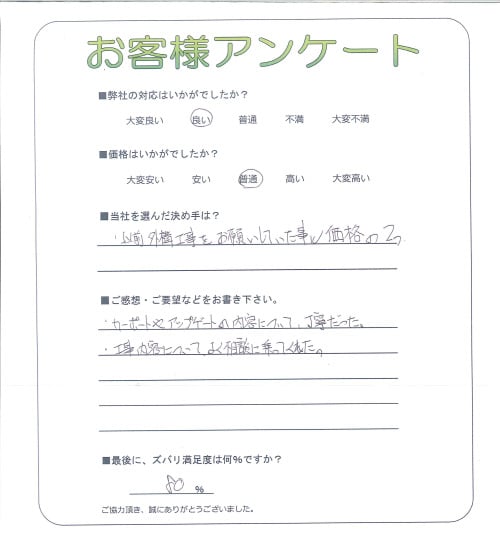 お客様アンケート
■弊社の対応はいかがでしたか？
大変良い 良い 普通 不満 大変不満
■価格はいかがでしたか？
大変安い 安い 普通 高い 大変高い
■当社を選んだ決め手は？
・以前外構工事をお願いしていた事と価格の2つ
■ご感想・ご要望などをお書き下さい。
・カーポートやアップゲートの内容について、丁寧だった。
・工事内容について、よく相談に乗ってくれた。
■最後に、ズバリ満足度は何%ですか？
80 %
ご協力頂き、誠にありがとうございました。